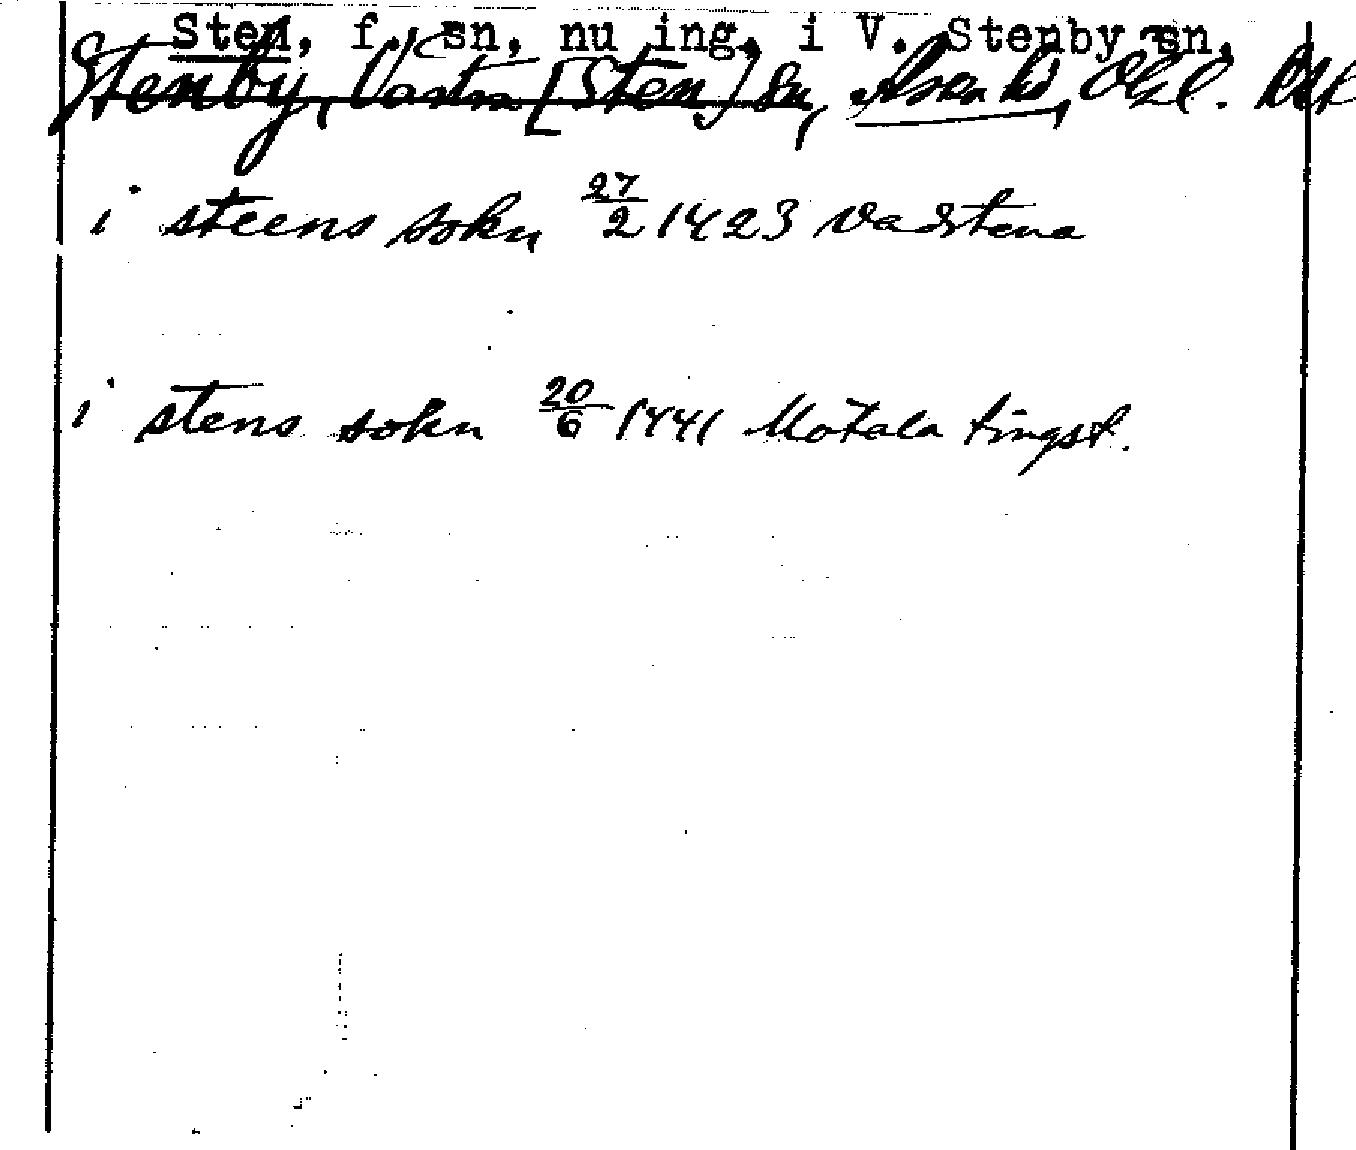 Sten, f. sn, nu ing. i V. Stenby sn,
Stenby, Västra [Sten] sn, Aska hd, Ögl. RAp
i steens sokn 27/2 1423 Vadstena
i stens sokn 20/6 1441 Motala tingst.